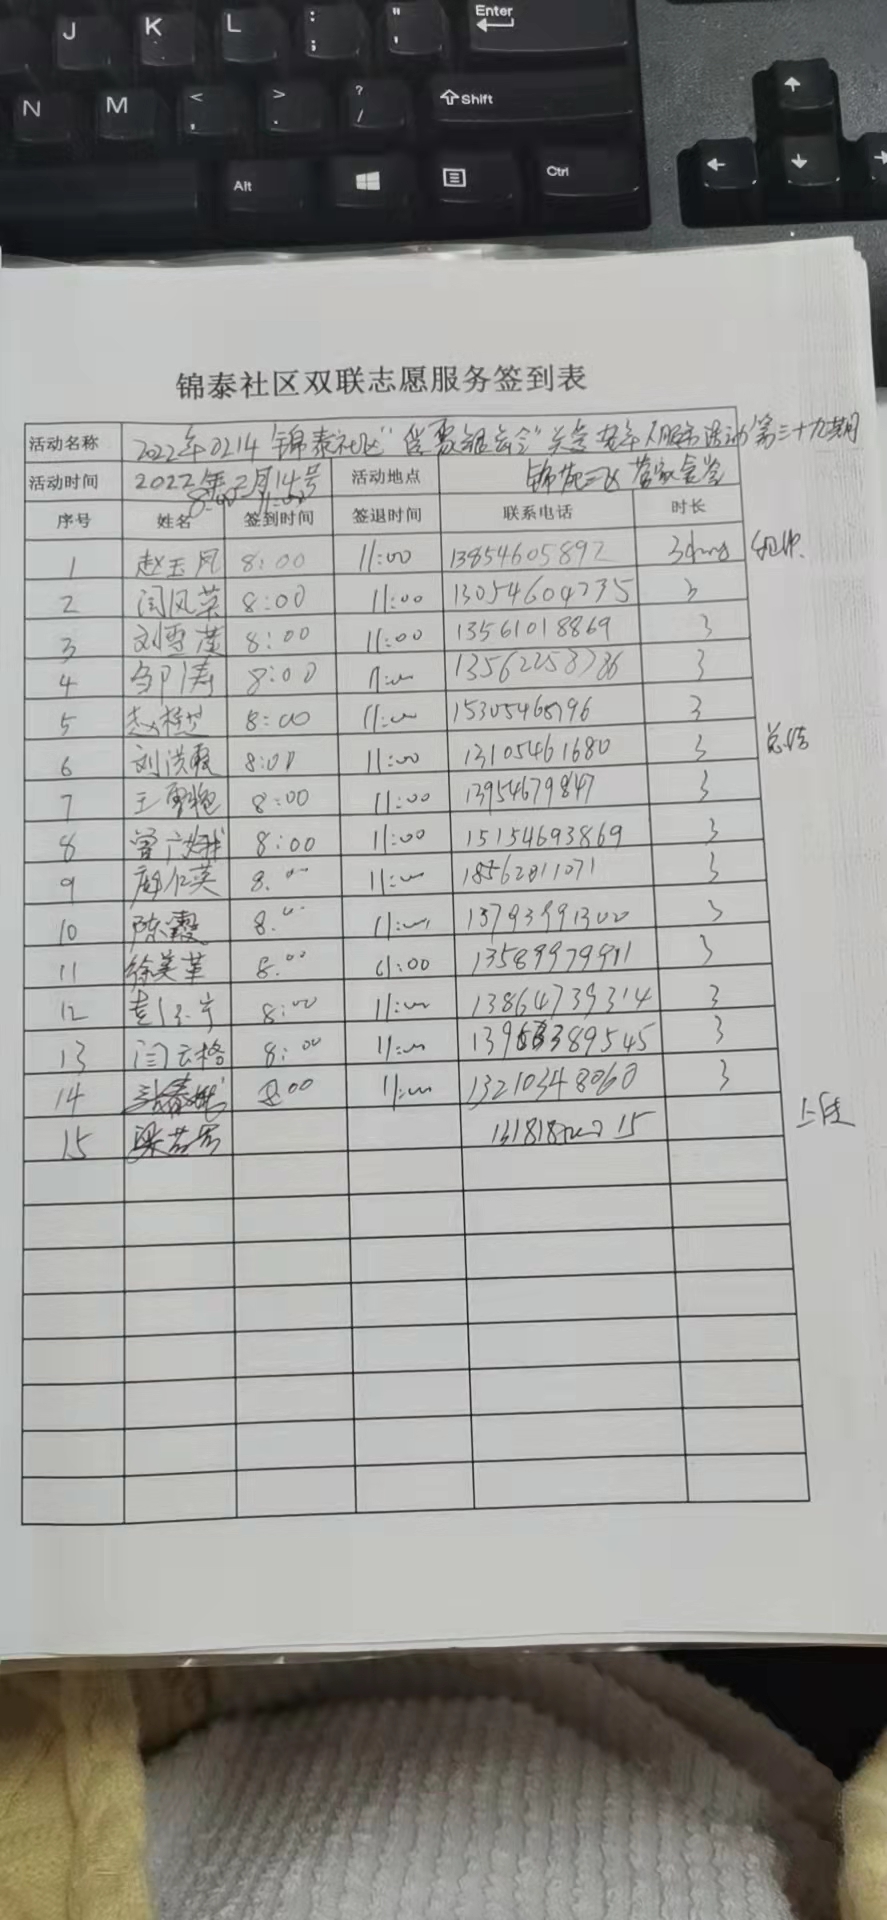 J K L : ; " ' Enter
N M < , > . ? / Shift
Alt Ctrl
锦泰社区双联志愿服务签到表
活动名称 2022年0214"锦泰社区 关爱老年人服务活动"第三十九期
活动时间 2022年2月14号 活动地点 锦苑三区
8:00 11:00
序号 姓名 签到时间 签退时间 联系电话 时长
1 赵玉凤 8:00 11:00 13854605892 3
2 闫风荣 8:00 11:00 13054604735 3
3 刘雪莲 8:00 11:00 13561018869 3
4 邹涛 8:00 11:00 13562258786 3
5 8:00 11:00 3
6 刘洪霞 8:00 11:00 13105461680 3
总结
7 8:00 11:00 13954679847 3
8 曾广娥 8:00 11:00 15154693869 3
9 8:00 11:00 18562011071 3
10 陈霞 8:00 11:00 13793991300 3
11 徐美革 8:00 11:00 3
12 8:00 11:00 13864739314 3
13 闫云格 8:00 11:00 3
14 8:00 11:00 13210348060 3
15